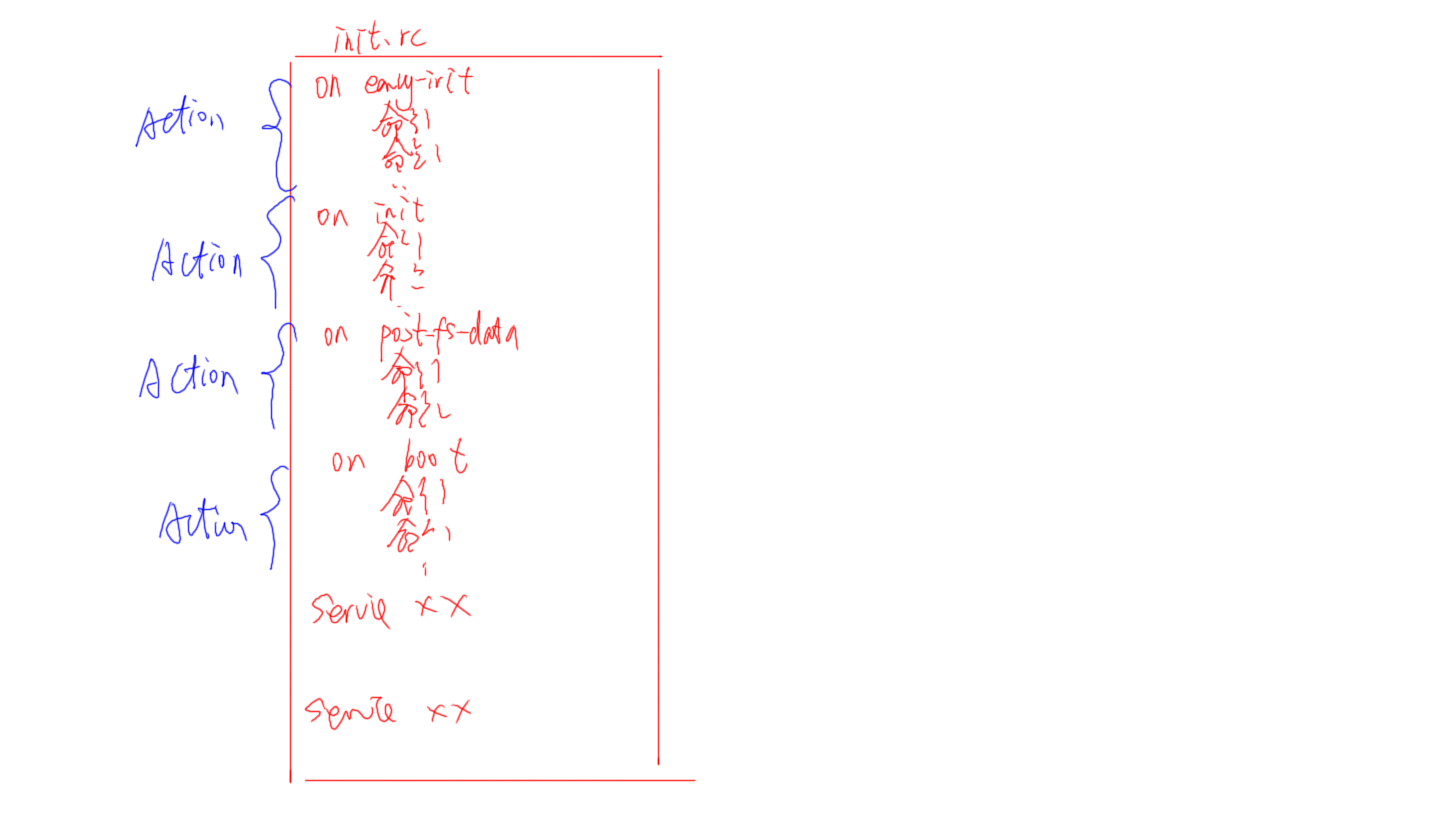 init.rc
Action
on early-init
命令1
命令1
..
Action
on init
命令1
命令二
..
Action
on post-fs-data
命令1
命令2
Action
on boot
命令1
命令1
service xx
service xx